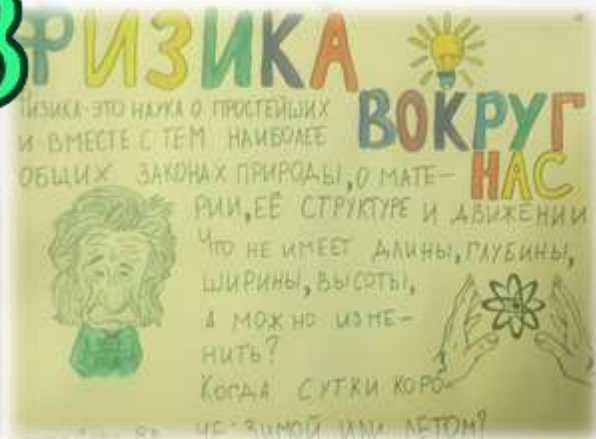 ФИЗИКА
ВОКРУГ
НАС
ФИЗИКА-ЭТО НАУКА О ПРОСТЕЙШИХ
И ВМЕСТЕ С ТЕМ НАИБОЛЕЕ
ОБЩИХ ЗАКОНАХ ПРИРОДЫ, О МАТЕ-
РИИ, ЕЁ СТРУКТУРЕ И ДВИЖЕНИИ
ЧТО НЕ ИМЕЕТ ДЛИНЫ, ГЛУБИНЫ,
ШИРИНЫ, ВЫСОТЫ,
А МОЖНО ИЗМЕ-
НИТЬ?
КОГДА СУТКИ КОРО-
ЧЕ: ЗИМОЙ ИЛИ ЛЕТОМ?